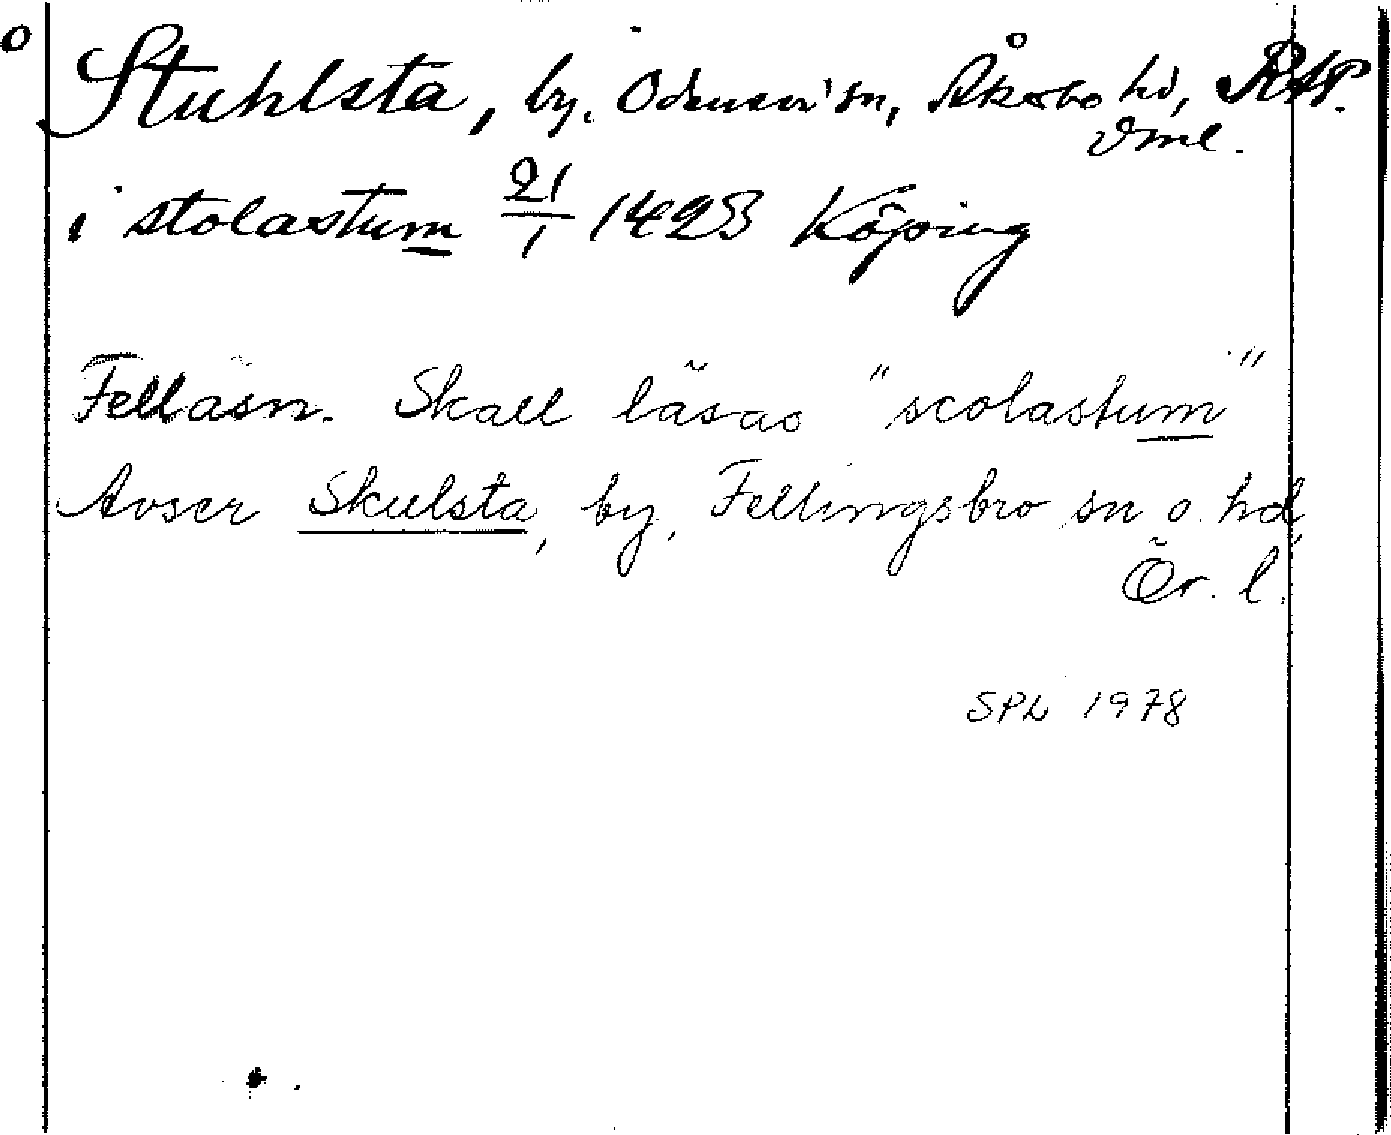 o Stuhlsta, by, Odensvi sn, Åkerbo hd, RAP.
Vml.
i stolastum 21/1 1423 Köping
Felläsn. Skall läsas "scolastum"
Avser Skulsta, by, Fellingsbro sn o. hd,
Ör. l.
SPL 1978